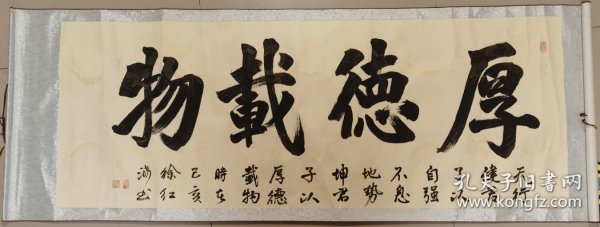 厚德載物
天行
健君
子以
自强
不息
地势
坤君
子以
厚德
載物
時在
己亥
徐红
海书
孔夫子旧书网
www.kongfz.com